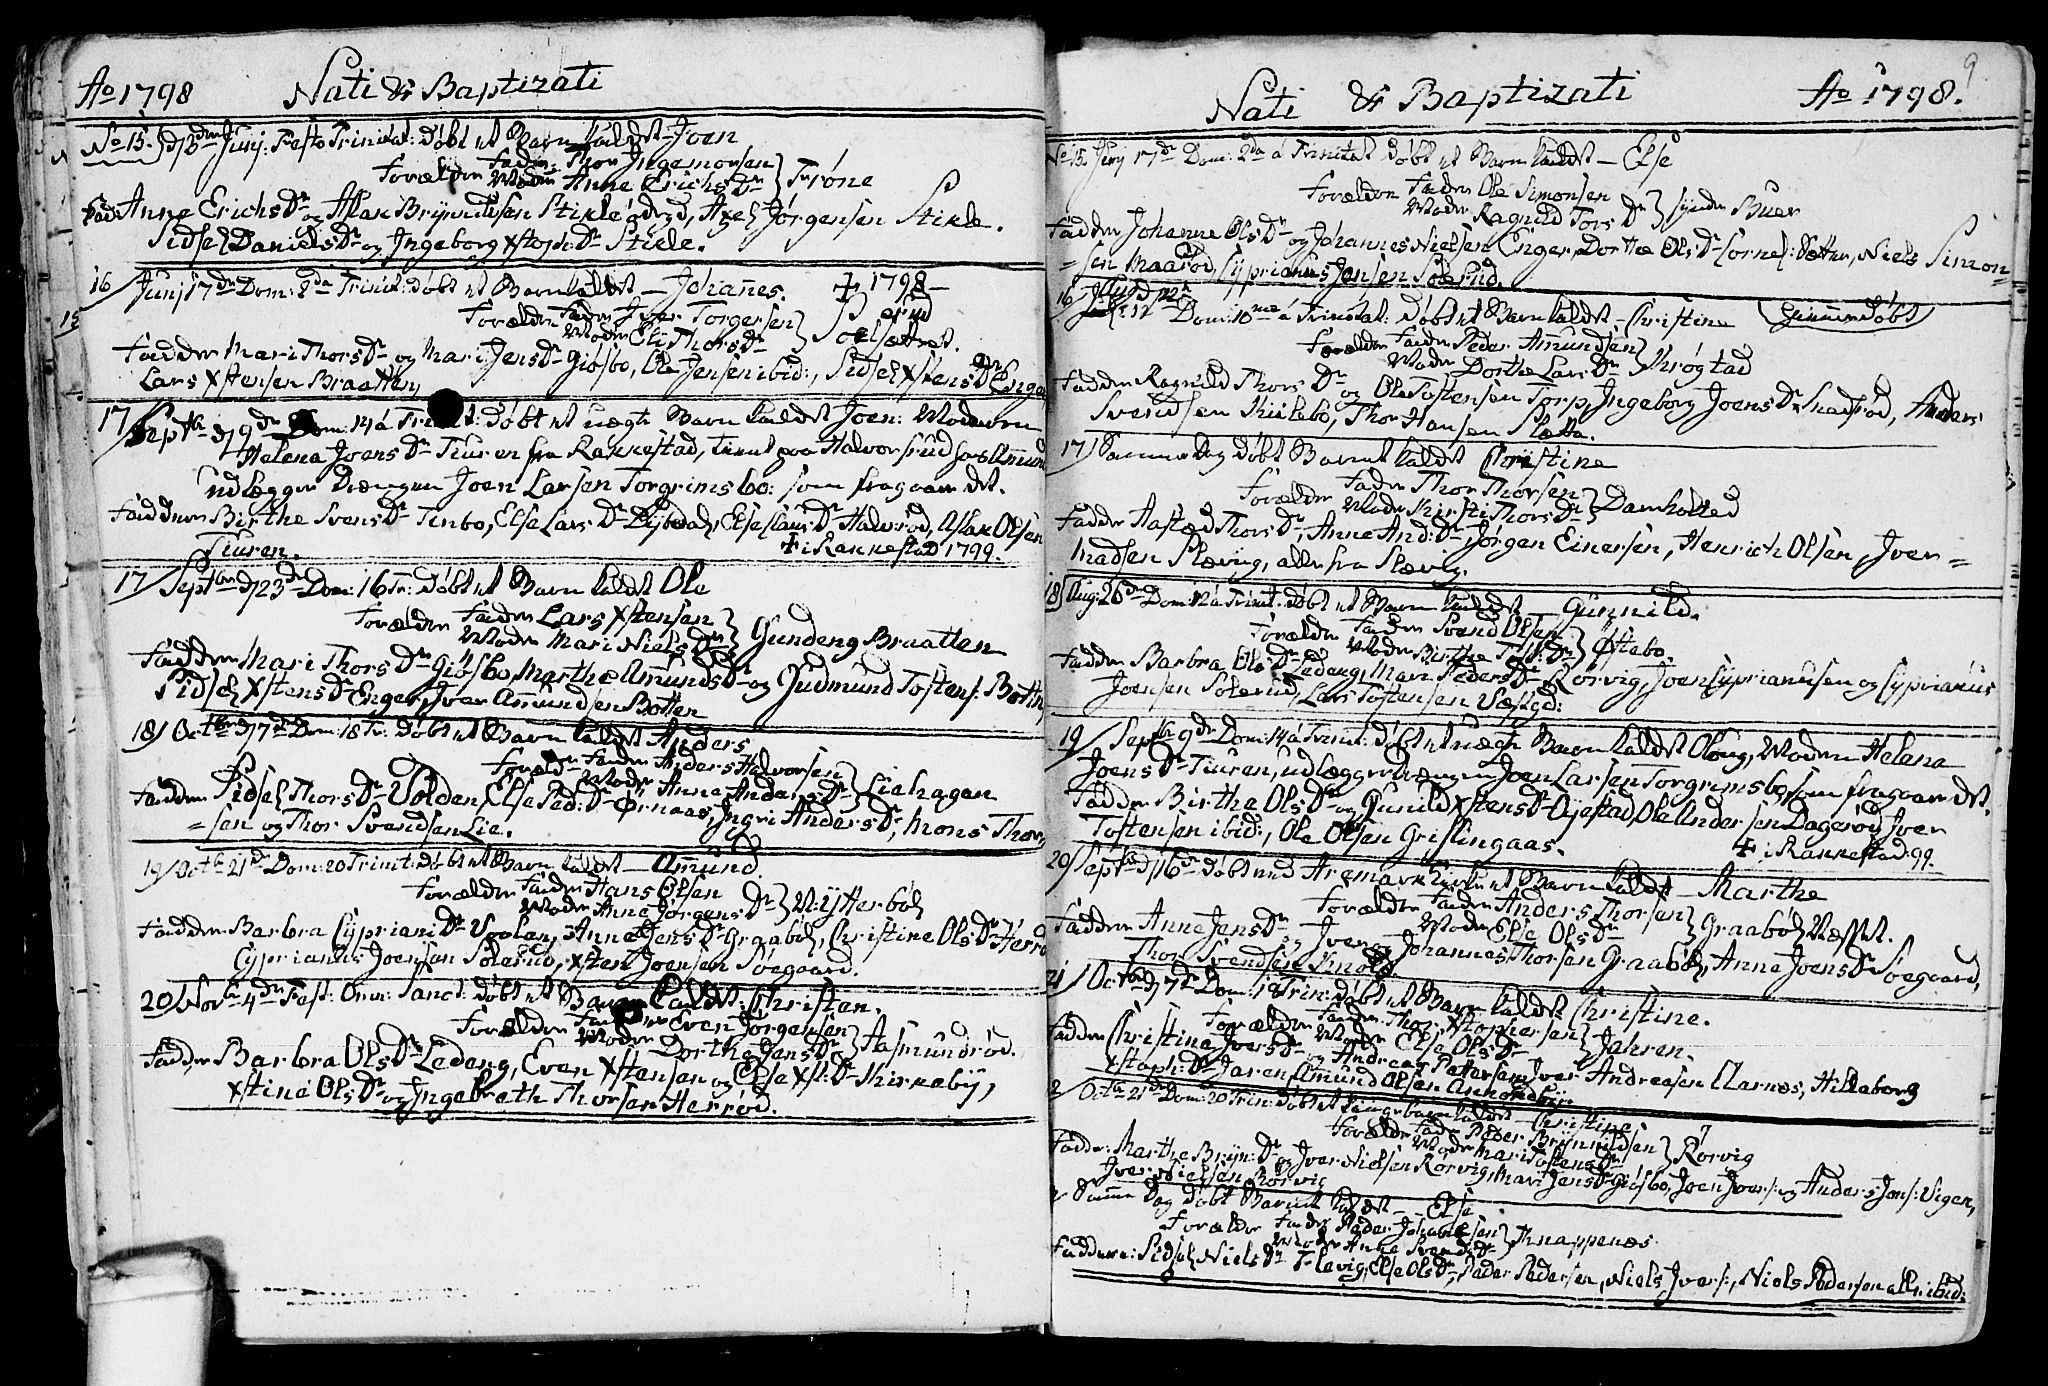 Ao 1798 Nati & Baptizati
No 15. d 3den Junj: Festo Trinitat: døbt et Barn kaldet Joen
Forældre Fader Thor Ingemorsen
Moder Anne Erichs Dr } Trone
Fad: Anne Erichs Dr og Aslak Brynildsen Stikle ødegd, Axel Jørgensen Stikle.
Sidsel Daniels Dr og Ingeborg Xstoph: Dr Stikle.
16 Junj 17de Dom: 2da Trinit: døbt et Barn kaldet Johañes. † 1798
Forældre Fader Iver Torgersen
Moder Eli Thors Dr } Soelsættret.
Faddere Mari Thors Dr og Mari Jens Dr Giøsbo, Ole Jensen ibid:, Sidsel Xstens Dr Enger
Lars Xstensen Braatten,
17 Septbr d 9de Dom: 14 a Trinit: døbt et uægte Barn kaldet Joen: Moderen
Helena Joens Dr Tiuren fra Rakkestad, tient paa Halvorsrud hos Amund
udlægger Drængen Joen Larsen Torgrimsbo: som fragaar det.
Faddere Birthe Svens Dr Tenbo, Else Lars Dr, Else Claus Dr Halvorød, Aslak Olsen
Tiuren. † i Rakkestad 1799.
17 Septbr d 23de Dom: 16 Tr: døbt et Barn kaldet Ole
Forældre Fader Lars Xstensen
Moder Mari Niels Dr } Gundeng Braatten
Faddere Mari Thors Dr Giøsbo, Marthe Amunds Dr og Gudmund Tostens: Botten,
Sidsel Xstens Dr Enger, Iver Amundsen Botten
18 Octbr d 7de Dom: 18 Tr: døbt et Barn kaldet Anders
Forældr Fader Anders Halvorsen
Moder Anna Anders Dr } Liehagen
Faddere Sidsel Thors Dr Volden, Else Ped: Dr Ørnaas, Ingri Anders Dr, Mons Thor,
=sen og Thor Svendsen Lie.
19 Octbr 21de Dom: 20 Trinit: døbt et Barn kaldet Amund.
Forældre Fader Hans Olsen
Moder Anne Jørgens Dr } N: Ytterbøl
Faddere Barbra Cypriani Dr Voolen, Anne Jens Dr Graabøl, Christine Ols Dr Herrø
Cyprianus Joensen Solerud, Xsten Joensen Søegaard.
20 Novbr 4de Fest: Omn: Sanct: døbt et Barn kaldet: Christen.
Forældre Fader Even Jørgensen
Moder Dorthe Jens Dr } Aasmundrød.
Faddere Barbra Ols Dr Ledeng, Even Xstensen og Else Xst: Dr Kirkebÿ,
Xstine Ols Dr og Ingebreth Thorsen Herrød.
9
Nati & Baptizati Ao 1798.
No 15 Junj 17de Dom: 2da a Trinitat døbt et Barn kaldet Else
Forældre Fader Ole Simonsen
Moder Ragnild Tors Dr } synder Buer
Faddere Johanne Ols Dr og Johannes Nielsen Enger, Dorthe Ols Dr Sætter, Niels Simon=
=sen Maarød, Cyprianus Jensen Solerud.
16 Aug d 12te Dom: 10me a Trinitat: døbt et Barn kaldet Christine (Hiemmedøbt)
Forældre Fader Peder Amundsen
Moder Dorthe Lars Dr } Krogstad
Faddere Ragnild Thors Dr og Ole Tostensen Torp, Ingeborg Joens Dr, Anders
Svendsen Kirkebo, Thor Hansen Slætta.
17 Samme Dag døbt Barnet kaldet Christine
Forældre Fader Thor Thorsen
Moder Kirsti Thors Dr } Damholted
Faddere Aasted Thors Dr, Anne And: Dr, Jørgen Einersen, Henrich Olsen, Iver=
Madsen Slævig, alle fra Slævig.
18 Aug: 26de Dom: 12 a Trinit: døbt et Barn kaldet Guñild.
Forældre Fader Svend Olsen
Moder Birthe Tost: Dr } Østebo.
Faddere Barbra Ols Dr Ledeng, Mari Peders Dr Rørvig, Joen Cyprianusen og Cyprianus
Joensen Solerud, Lars Tostensen Væstgd:
19 Septbr 9de Dom: 14 a Trinit: døbt et uægte Barn kaldet Oloug, Moderen Helena
Joens Dr Tiuren, udlægger Drængen Joen Larsen Torgrimsbo, som fragaar det.
Faddere Birthe Ols Dr og Gunild Xstens Dr Øÿestad, Ole Andersen Dagerød, Iver
Tostensen ibid:, Ole Olsen Grislingaas. † i Rakkestad: 99.
20 Septbr d 16de døbt ved Aremark Kirke et Barn kaldet Marthe
Forældre Fader Anders Thorsen
Moder Else Ols Dr } Graabøl Næsset.
Faddere Anne Jens Dr og Iver og Johannes Thorsen Graabøl, Anne Joens Dr Søegaard,
Thor Svendsen Knold
21 Octbr d 7de Dom: 18 Trin: døbt et Barn kaldet Christine.
Forældre Fader Thor Xstophersen
Moder Else Ols Dr } Jahren.
Faddere Christine Ivers Dr og Andreas Pettersen, Iver Andreasen Aarnæs, Hilleborg
Xstoph: Dr Jaren, Amund Olsen Askondbÿe.
2 Octbr 21de Dom: 20 Trin: døbt et Pigebarn kaldet Christine
Forældre Fader Peder Brÿnnildsen
Moder Mari Tostens Dr } Rørvig
Fadder: Marthe Brÿn: Dr og Iver Nielsen Rørvig, Mari Jens Dr Giøsbo, Joen Ivers: og Anders Jons: Vigen,
Iver Nielsen Rørvig
2 Samme Dag døbt Barnet kaldet Else
Forældre Fader Peder Johannesen
Moder Anne Svends Dr } Knappenæs
Faddere: Sidsel Niels Dr Flævig, Else Ols Dr, Peder Pedersen, Niels Ivers:, Niels Pedersen alle ibid: